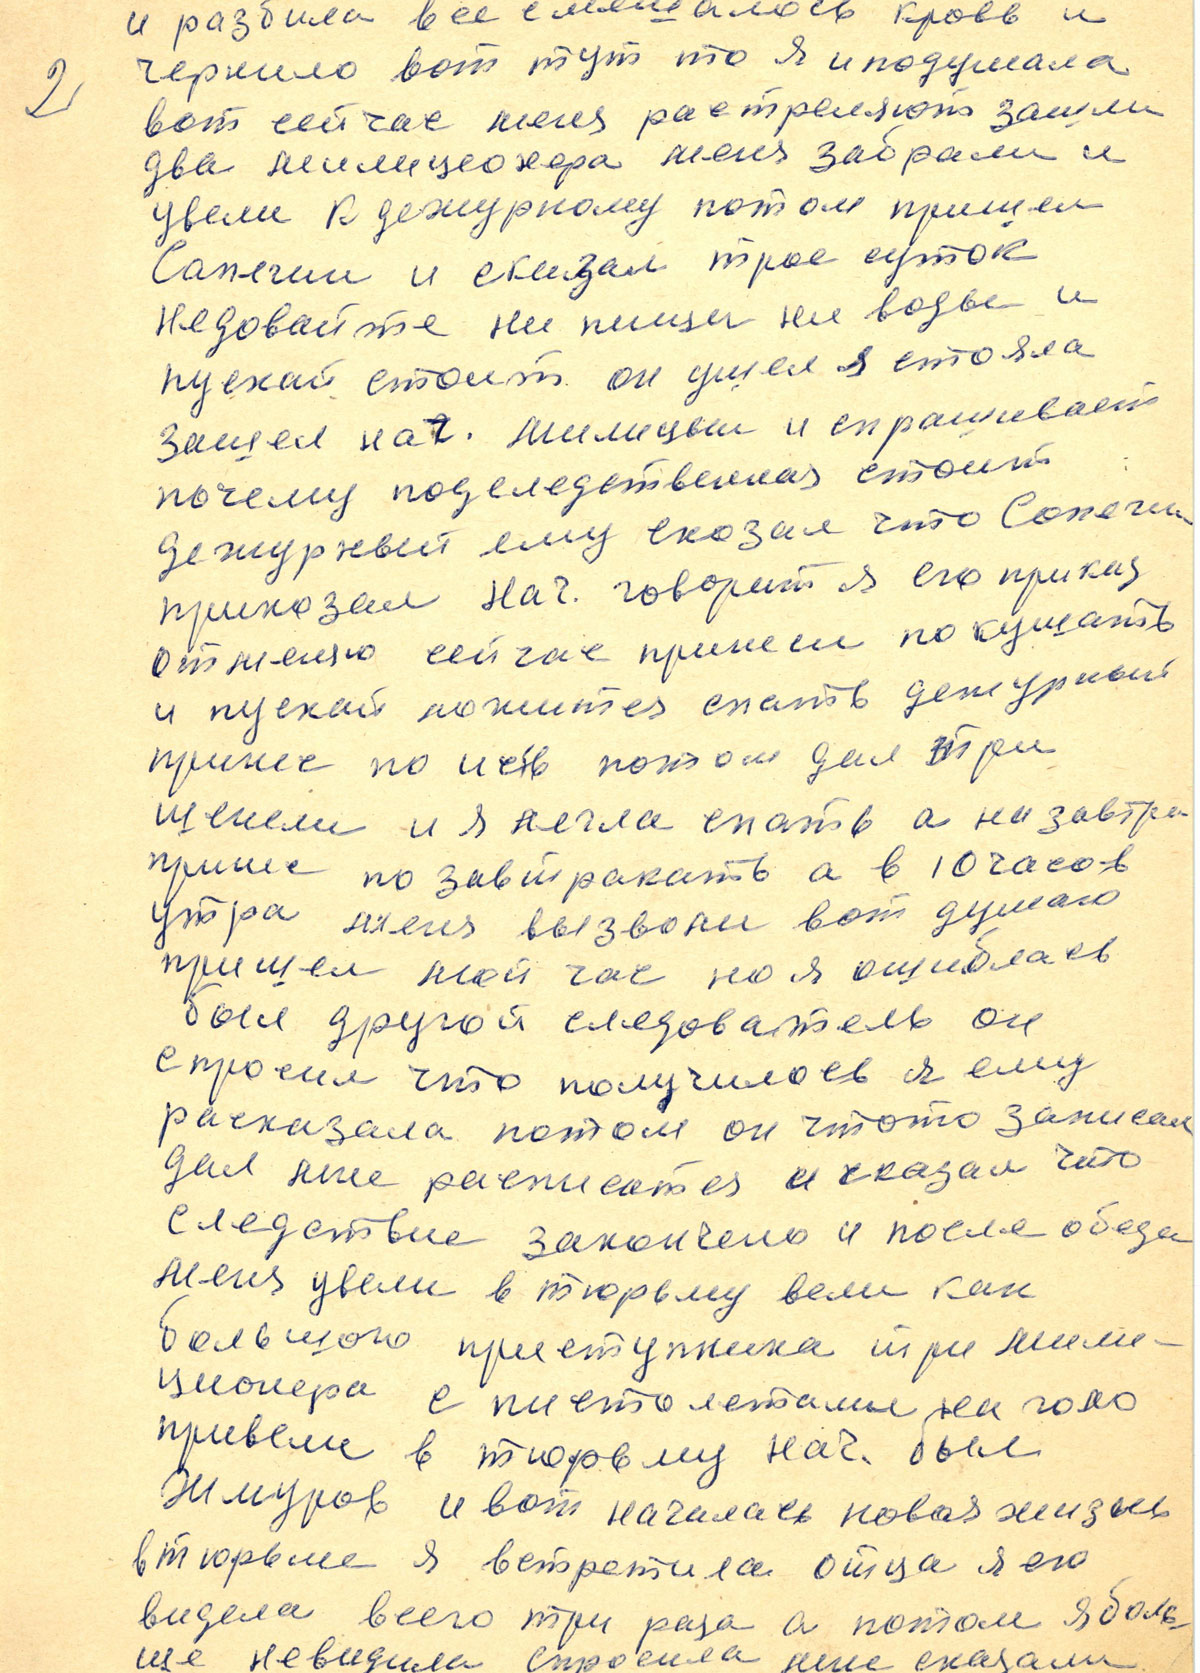 2
и разбила все смешалось кровь и
чернило вот тут то я и подумала
вот сейчас меня растреляют зашли
два милиционера меня забрали и
увели к дежурному потом пришел
Сапегин и сказал трое суток
недовайте ни пищи ни воды и
пускай стоит он ушел я стояла
зашел нач. милиции и спрашивает
почему подследственная стоит
дежурный ему сказал что Сапегин
приказал нач. говорит я его приказ
отменяю сейчас принеси покушать
и пускай ложится спать дежурный
принес поисть потом дал три
шенели и я легла спать а на завтра
принес по завтракать а в 10 часов
утра меня вызвали вот думаю
пришел мой час но я ошиблась
был другой следователь он
спросил что получилось я ему
расказала потом он чтото записал
дал мне расписатся и сказал что
следствие закончено и после обеда
меня увели в тюрьму вели как
большого приступника три мили-
ционера с пистолетами на голо
привели в тюрьму нач. был
Жмуров и вот началась новая жизнь
в тюрьме я встретила отца я его
видела всего три раза а потом я боль-
ше невидила спросила мне сказали